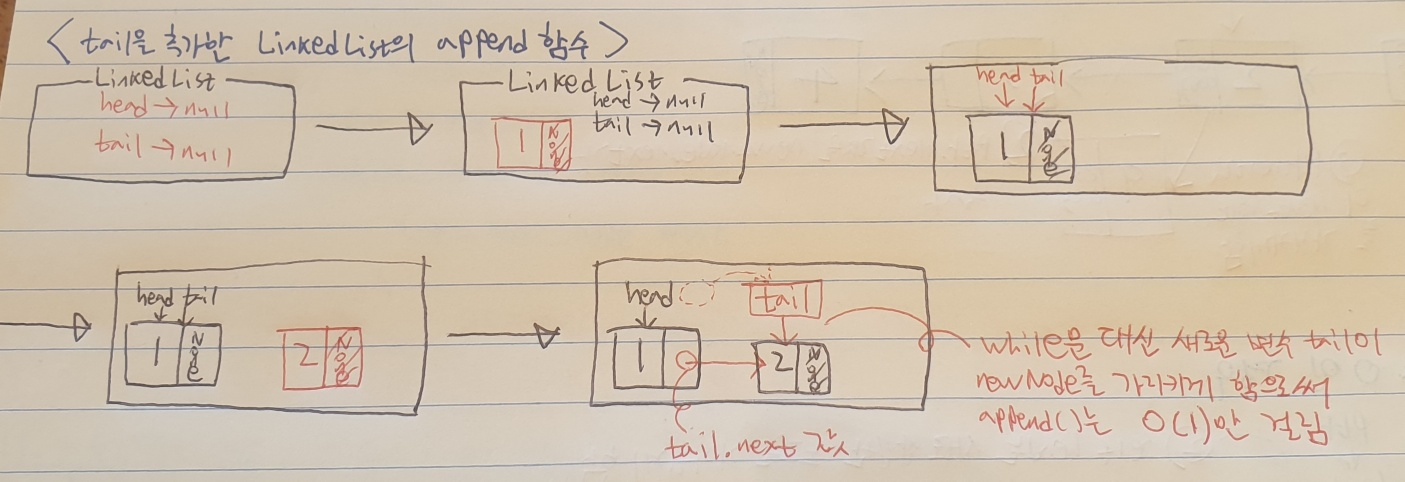 <tail을 추가한 LinkedList의 append 함수>
LinkedList
head → null
tail → null
LinkedList
head → null
tail → null
1 None
head tail
1 None
head tail
1 None
2 None
head
tail
1
2 None
while문 대신 새로운 변수 tail이
newNode를 가리키게 함으로써
append()는 O(1)만 걸림
tail.next 값